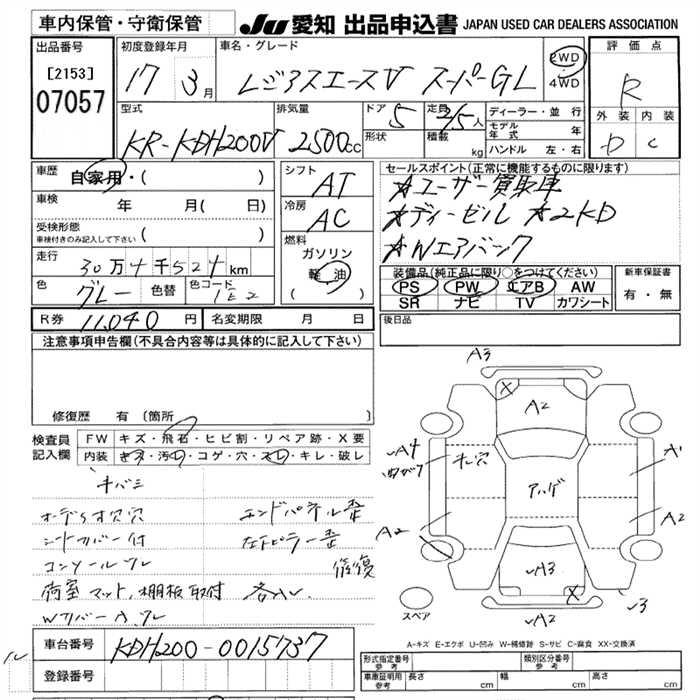 車内保管・守衛保管
JU 愛知 出品申込書 JAPAN USED CAR DEALERS ASSOCIATION
出品番号
[2153]
07057
初度登録年月
17 3月
車名・グレード
レジアスエースV スーパーGL
2WD
4WD
評価点
R
外装 内装
D C
型式
KR-KDH200V
排気量
2500cc
ドア 5
形状
定員 2/5人
積載 kg
ディーラー・並行
モデル年式 年
ハンドル 左・右
車歴
自家用・( )
車検 年 月( 日)
受検形態
車検付きのみ記入して下さい ( )
走行
30万4千524km
色 グレー 色替
色コード 1E2
シフト AT
冷房 AC
燃料
ガソリン
軽油
( )
セールスポイント(正常に機能するものに限ります)
★ユーザー買取車
★ディーゼル ★2KD
★Wエアバック
装備品(純正品に限り○をつけてください)
PS PW エアB AW
SR ナビ TV カワシート
新車保証書
有・無
R券 11,040円
名変期限 月 日
後日品
注意事項申告欄(不具合内容等は具体的に記入して下さい)
修復歴 有〔箇所 〕
検査員記入欄
FW キズ・飛石・ヒビ割・リペア跡・X要
内装 キズ・汚れ・コゲ・穴・スレ・キレ・破レ
エンドパネル歪
シートカバー付
左下ピラー歪
コンソールワレ
修復
荷室マット、棚板取付
各AU
A3
X
A2
A4
ネジ穴
A1
アハゲ
A2
A2
A3
X
3
A2
スペア
A-キズ E-エクボ U-凹み W-補修跡 S-サビ C-腐食 XX-交換済
車台番号 KDH200-0015737
登録番号
形式指定番号 参考
類別区分番号 参考
車庫証明用参考 長さ cm 幅 cm 高さ cm